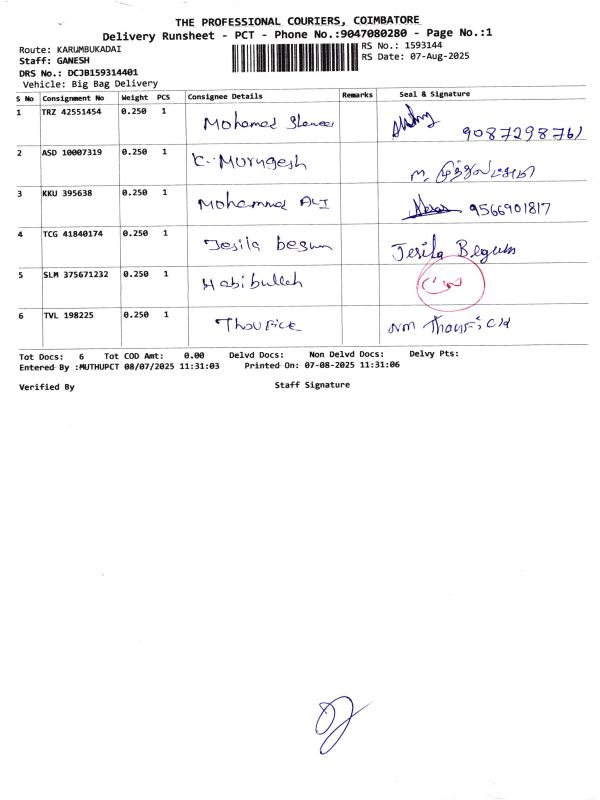 THE PROFESSIONAL COURIERS, COIMBATORE
Delivery Runsheet - PCT - Phone No.:9047080280 - Page No.:1
Route: KARUMBUKADAI RS No.: 1593144
Staff: GANESH RS Date: 07-Aug-2025
DRS No.: DCJB159314401
Vehicle: Big Bag Delivery
S No Consignment No Weight PCS Consignee Details Remarks Seal & Signature
1 TRZ 42551454 0.250 1 Mohamed 9087298761
2 ASD 10007319 0.250 1 K. Murugesh
3 KKU 395638 0.250 1 Mohammed ALI 9566901817
4 TCG 41840174 0.250 1 Jesila begum Jesila Begum
5 SLM 375671232 0.250 1 Habibullah
6 TVL 198225 0.250 1 Thoufick
Tot Docs: 6 Tot COD Amt: 0.00 Delvd Docs: Non Delvd Docs: Delvy Pts:
Entered By :MUTHUPCT 08/07/2025 11:31:03 Printed On: 07-08-2025 11:31:06
Verified By Staff Signature